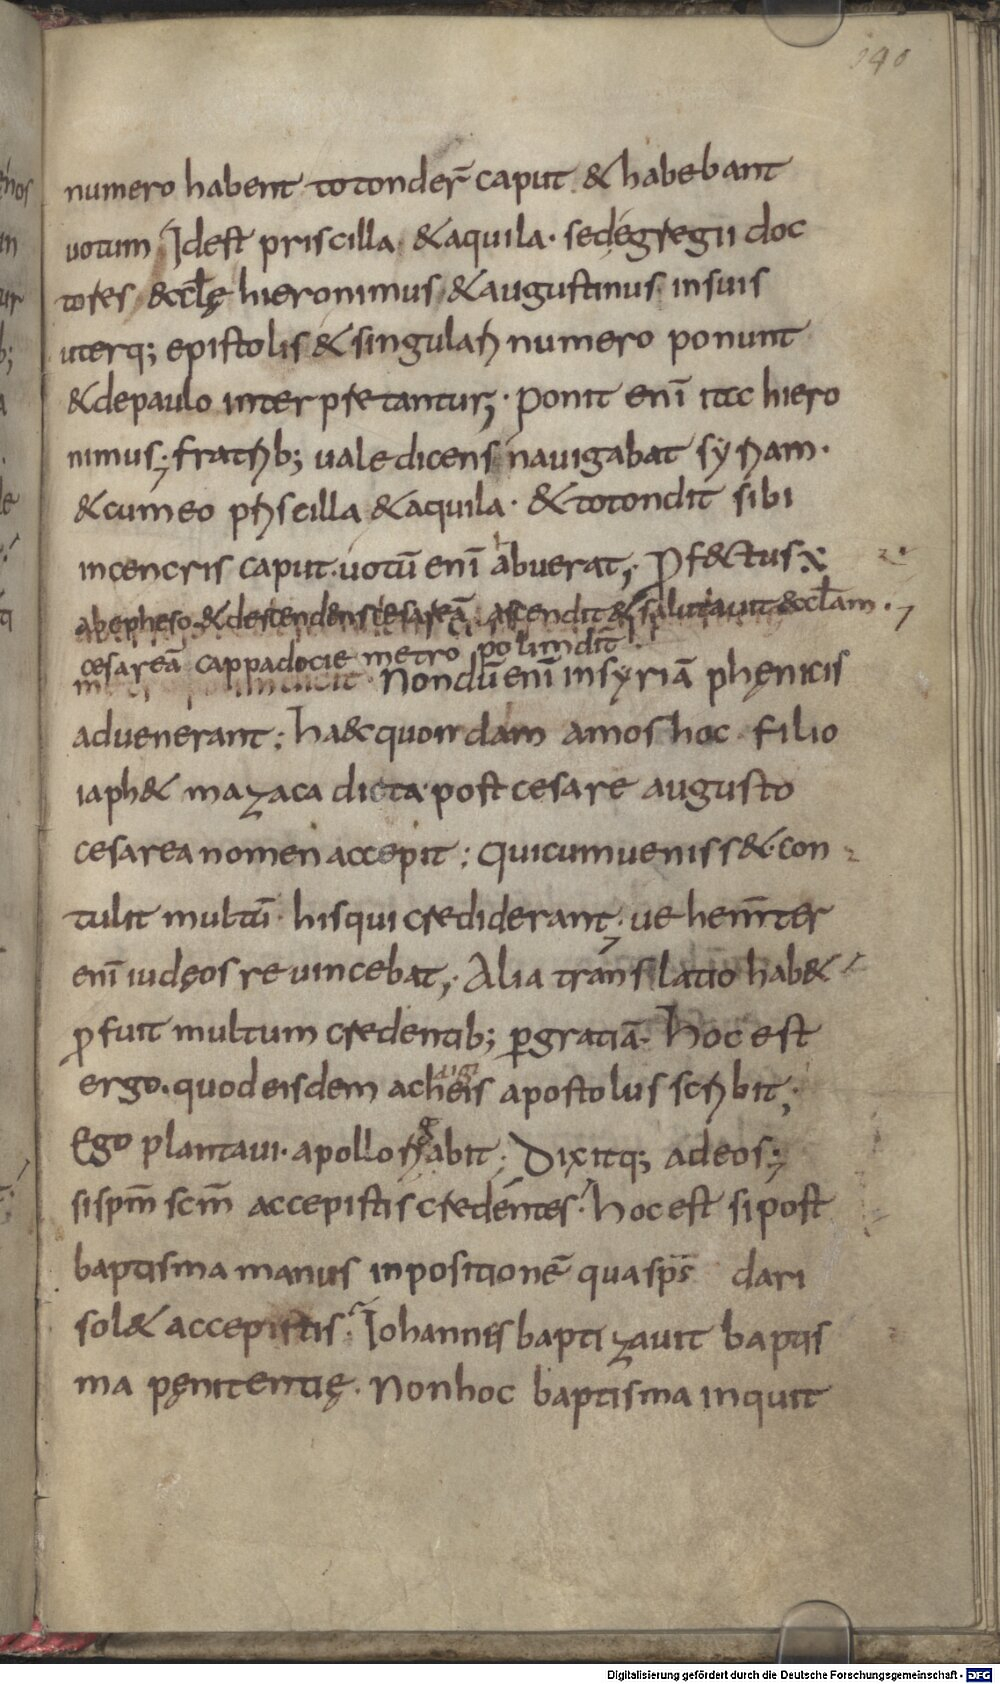 140
numero habent totonder̄ caput & habebant
uotum Idest priscilla & aquila · sed egregii doc
tores & eccl̄ę hieronimus & augustinus insuis
uterq; epistolis & singulari numero ponunt
& depaulo interpretantur; · ponit enī ita hiero
nimus; fratrib; uale dicens nauigabat syriam ·
& cumeo priscilla & aquila · & totondit sibi
incencris caput · uotū enī abuerat; profectus ÷
abepheso & descendens cesareā ascendit & salutauit eccl̄am ·
cesareā cappadocie metropolim dicit ·
Nondū enī insyriā phęnicis
aduenerant; haec quondam amos hoc filio
iaphet mazaca dicta · post cesare augusto
cesarea nomen accepit; Qui cum uenisset con
tulit multū · his qui crediderant; uehem̄ter
enī iudęos reuincebat; Alia translatio habet
profuit multum credentib; per gratiā · hoc est
ergo · quod eisdem acheis apostolus scribit;
Ego plantaui · apollo rigabit; Dixitq; adeos;
si spm̄ scm̄ accepistis credentes · hoc est si post
baptisma manus inpositionē qua sps̄ dari
solet accepistis · Iohannis baptizauit baptis
ma pęnitentię · Non hoc baptisma inquit
Digitalisierung gefördert durch die Deutsche Forschungsgemeinschaft - DFG